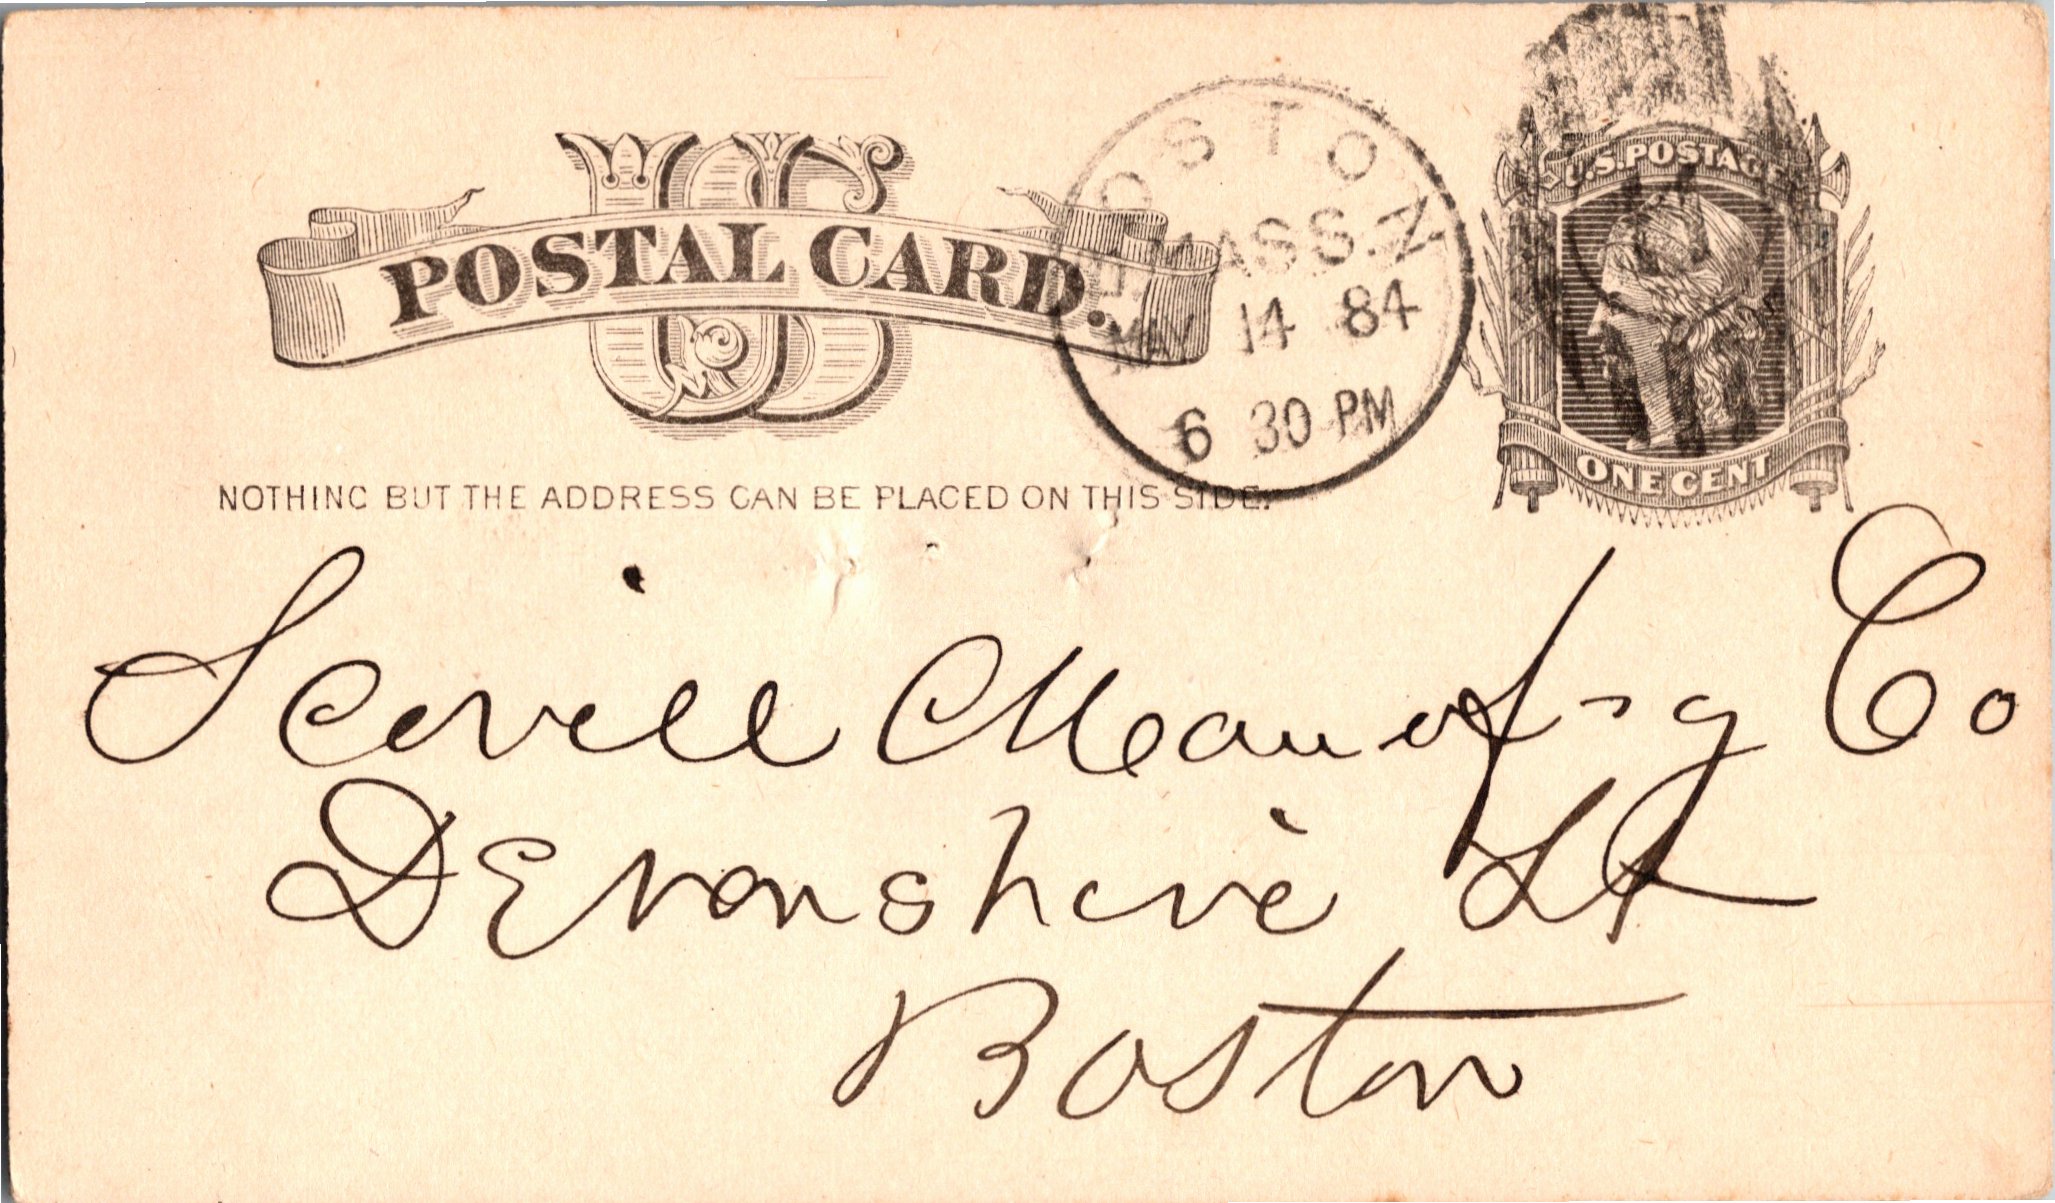 US
POSTAL CARD.
BOSTON
MASS.
MAY 14 84
6 30 PM
U.S. POSTAGE
ONE CENT
NOTHING BUT THE ADDRESS CAN BE PLACED ON THIS SIDE.
Scovill Manuf-g Co
Devonshire St
Boston